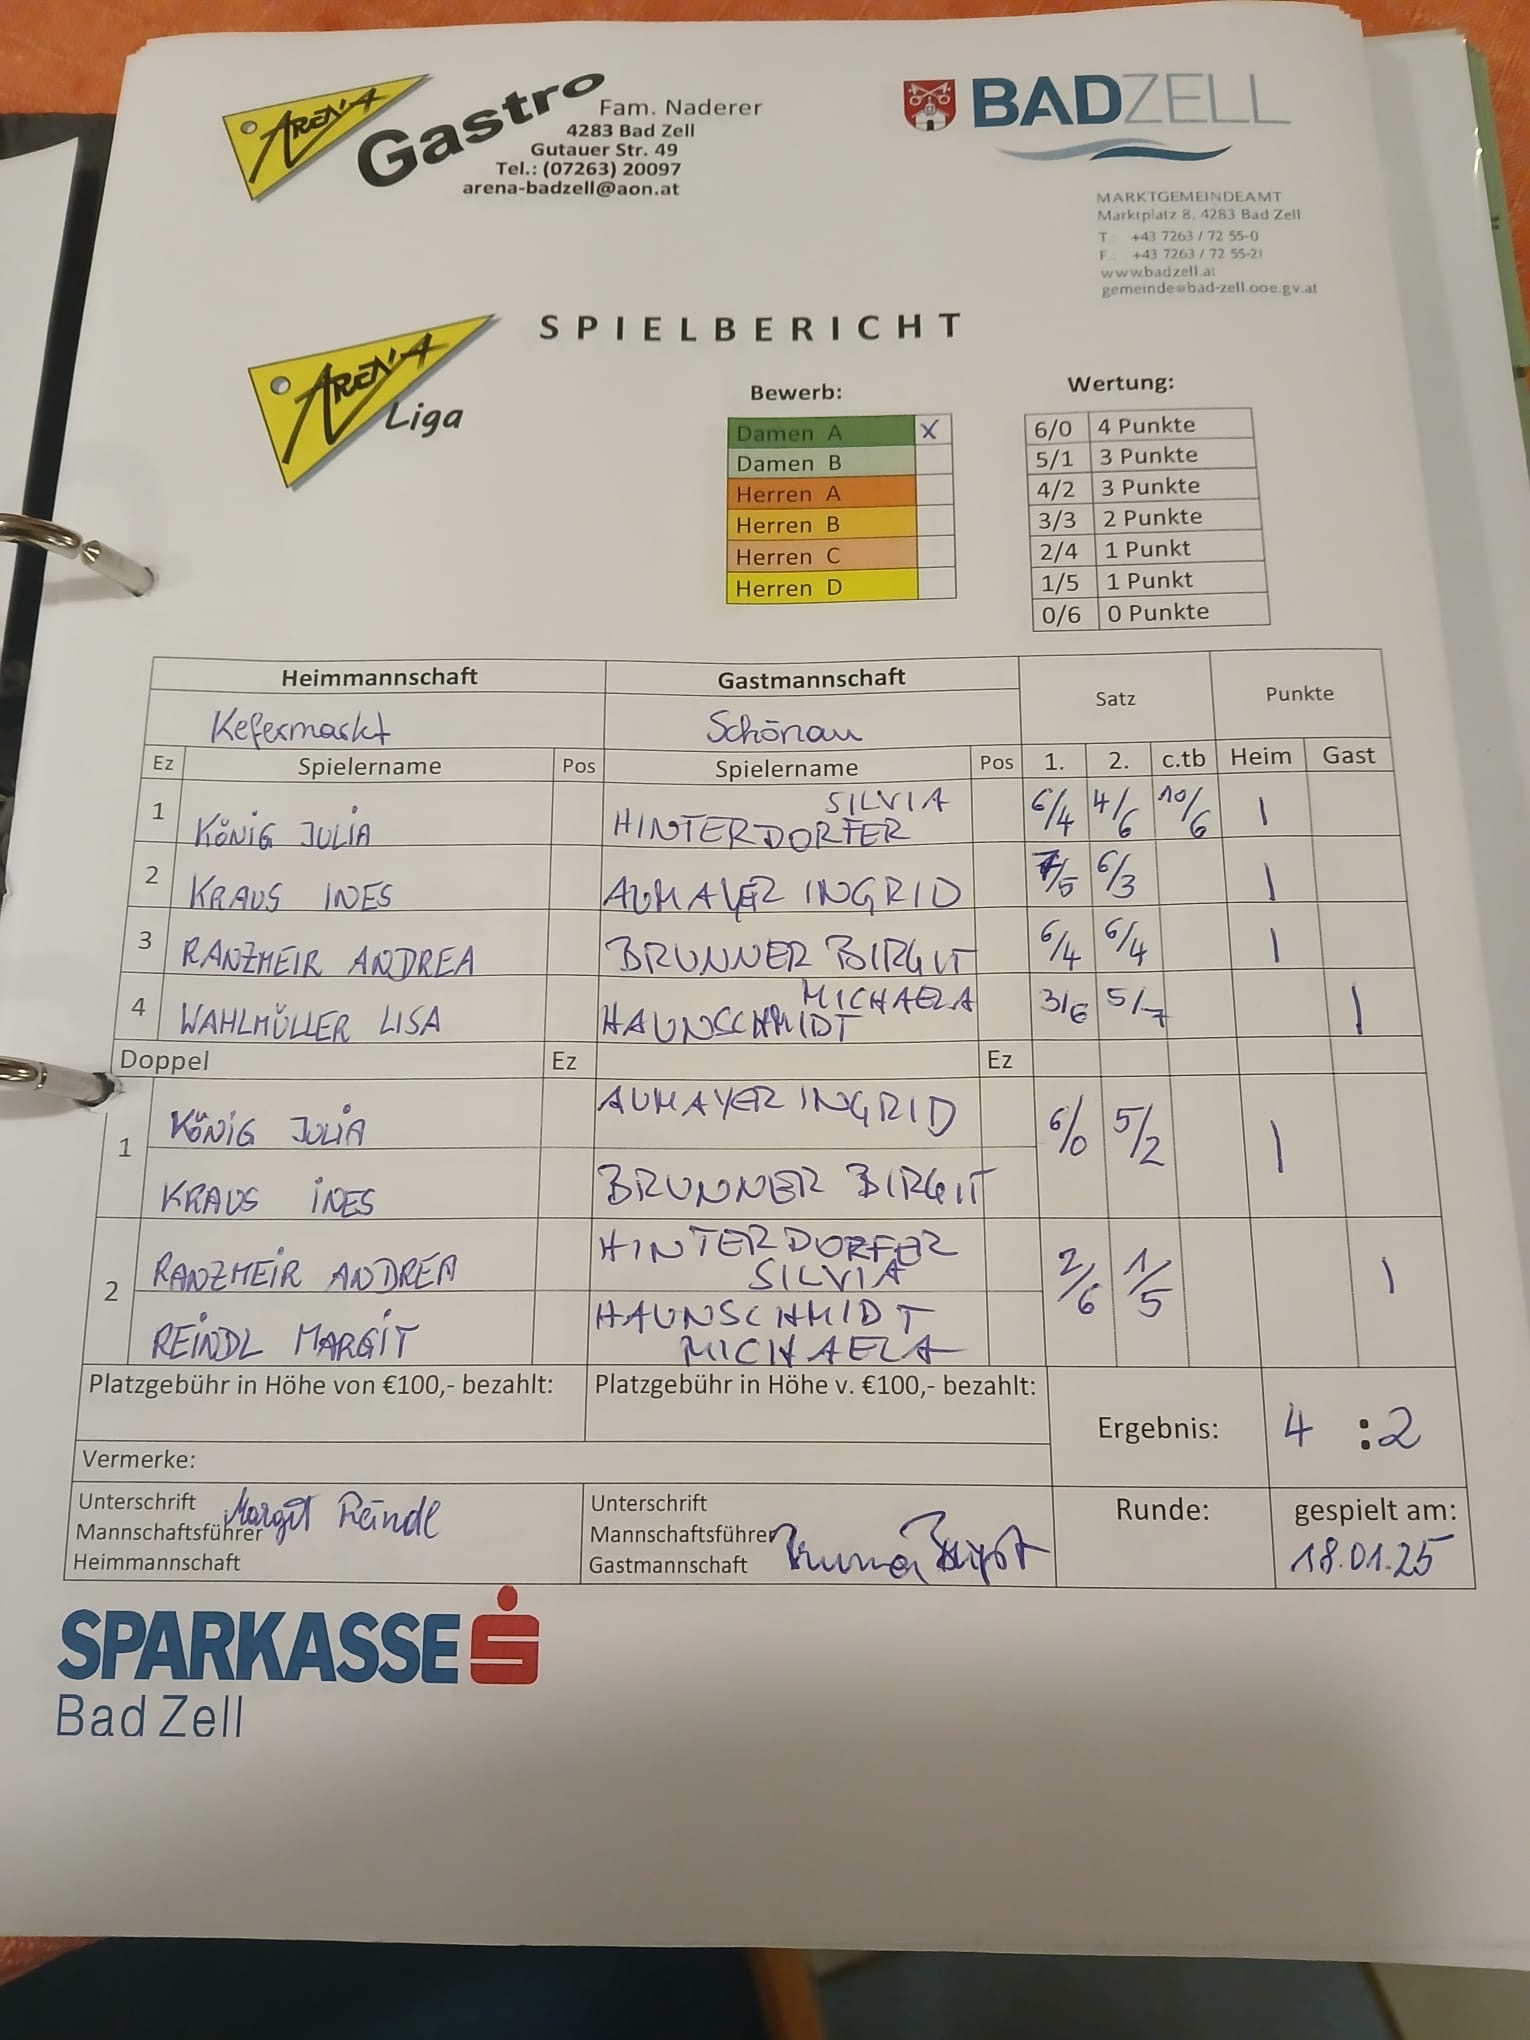 ARENA Gastro
Fam. Naderer
4283 Bad Zell
Gutauer Str. 49
Tel.: (07263) 20097
arena-badzell@aon.at
BADZELL
MARKTGEMEINDEAMT
Marktplatz 8, 4283 Bad Zell
T.: +43 7263 / 72 55-0
F.: +43 7263 / 72 55-21
www.badzell.at
gemeinde@bad-zell.ooe.gv.at
ARENA Liga
SPIELBERICHT
Bewerb:
Damen A X
Damen B
Herren A
Herren B
Herren C
Herren D
Wertung:
6/0 4 Punkte
5/1 3 Punkte
4/2 3 Punkte
3/3 2 Punkte
2/4 1 Punkt
1/5 1 Punkt
0/6 0 Punkte
Heimmannschaft Gastmannschaft Satz Punkte
Kefermarkt Schönau
Ez Spielername Pos Spielername Pos 1. 2. c.tb Heim Gast
1 KÖNIG JULIA HINTERDORFER SILVIA 6/4 4/6 10/6 1
2 KRAUS INES AUMAYER INGRID 7/5 6/3 1
3 RANZMEIR ANDREA BRUNNER BIRGIT 6/4 6/4 1
4 WAHLMÜLLER LISA HAUNSCHMIDT MICHAELA 3/6 5/7 1
Doppel Ez Ez
1 KÖNIG JULIA AUMAYER INGRID 6/0 5/2 1
KRAUS INES BRUNNER BIRGIT
2 RANZMEIR ANDREA HINTERDORFER SILVIA 2/6 1/5 1
REINDL MARGIT HAUNSCHMIDT MICHAELA
Platzgebühr in Höhe von €100,- bezahlt: Platzgebühr in Höhe v. €100,- bezahlt:
Ergebnis: 4 :2
Vermerke:
Unterschrift Mannschaftsführer Heimmannschaft Margit Reindl
Unterschrift Mannschaftsführer Gastmannschaft
Runde:
gespielt am:
18.01.25
SPARKASSE S
Bad Zell